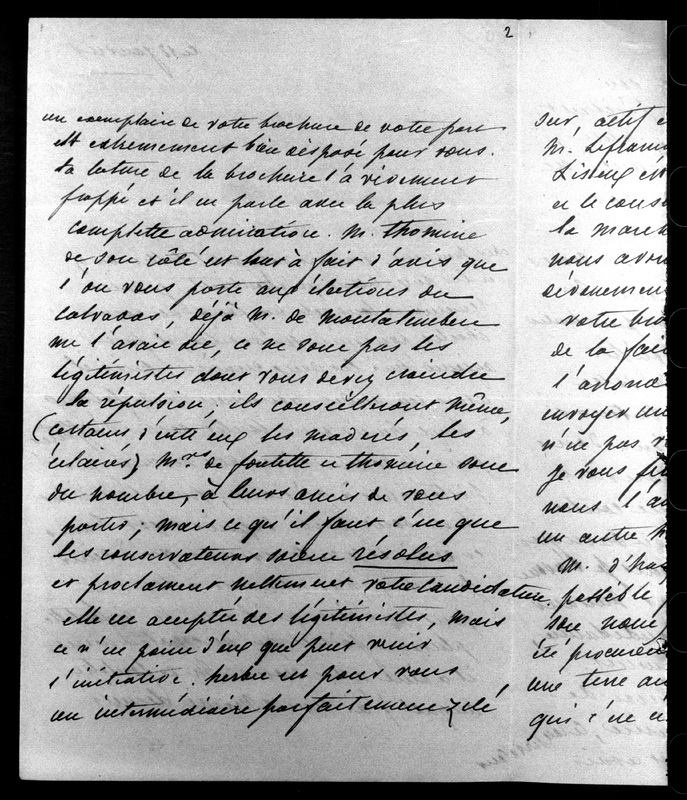 2
un exemplaire de votre brochure de votre part
est extremement bien disposé pour vous.
La lecture de la brochure l'a vivement
frappé et il en parle avec la plus
complette admiration. M. Thomine
de son côté est tout à fait d'avis que
l'on vous porte aux élections du
Calvados, déjà M. de Montalembert
me l'avait dit, ce ne sont pas les
légitimistes dont vous devez craindre
la répulsion; ils conseilleront même,
(certains d'entr'eux les modérés, les
éclairés) Mrs de fontette et thomine sont
du nombre, à leurs amis de vous
porter; mais ce qu'il faut c'est que
les conservateurs soient résolus
et proclament nettement votre candidature.
elle est acceptée des légitimistes, mais
ce n'est point d'eux que peut venir
l'initiative. herbu est pour vous
un intermédiaire parfaitement zélé,
sur, actif e
M. Lefranc
Lisieux ét
et le cons
la march
nous avon
évènement
votre bro
de la fai
l'arrond
envoyer un
n'est pas
je vous
nous l'a
un autre
M. d'hau
possible
son nom
été procur
une terre au
qui s'est